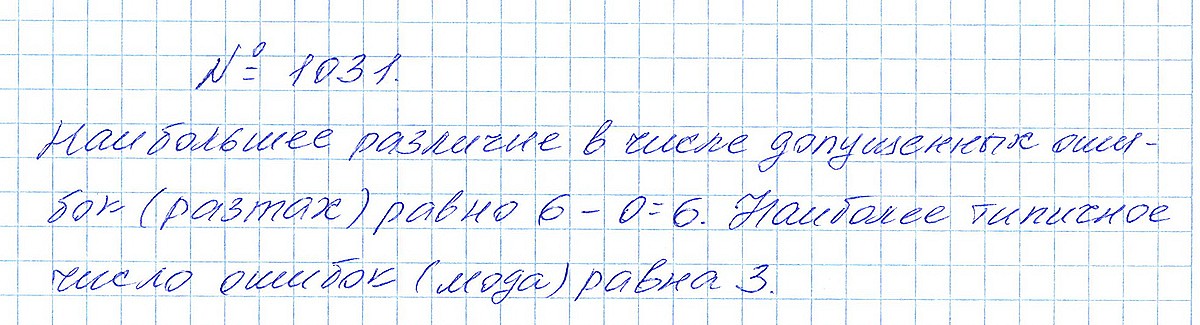 № 1031.
Наибольшее различие в числе допущенных оши-
бок (размах) равно 6 - 0 = 6. Наиболее типичное
число ошибок (мода) равна 3.